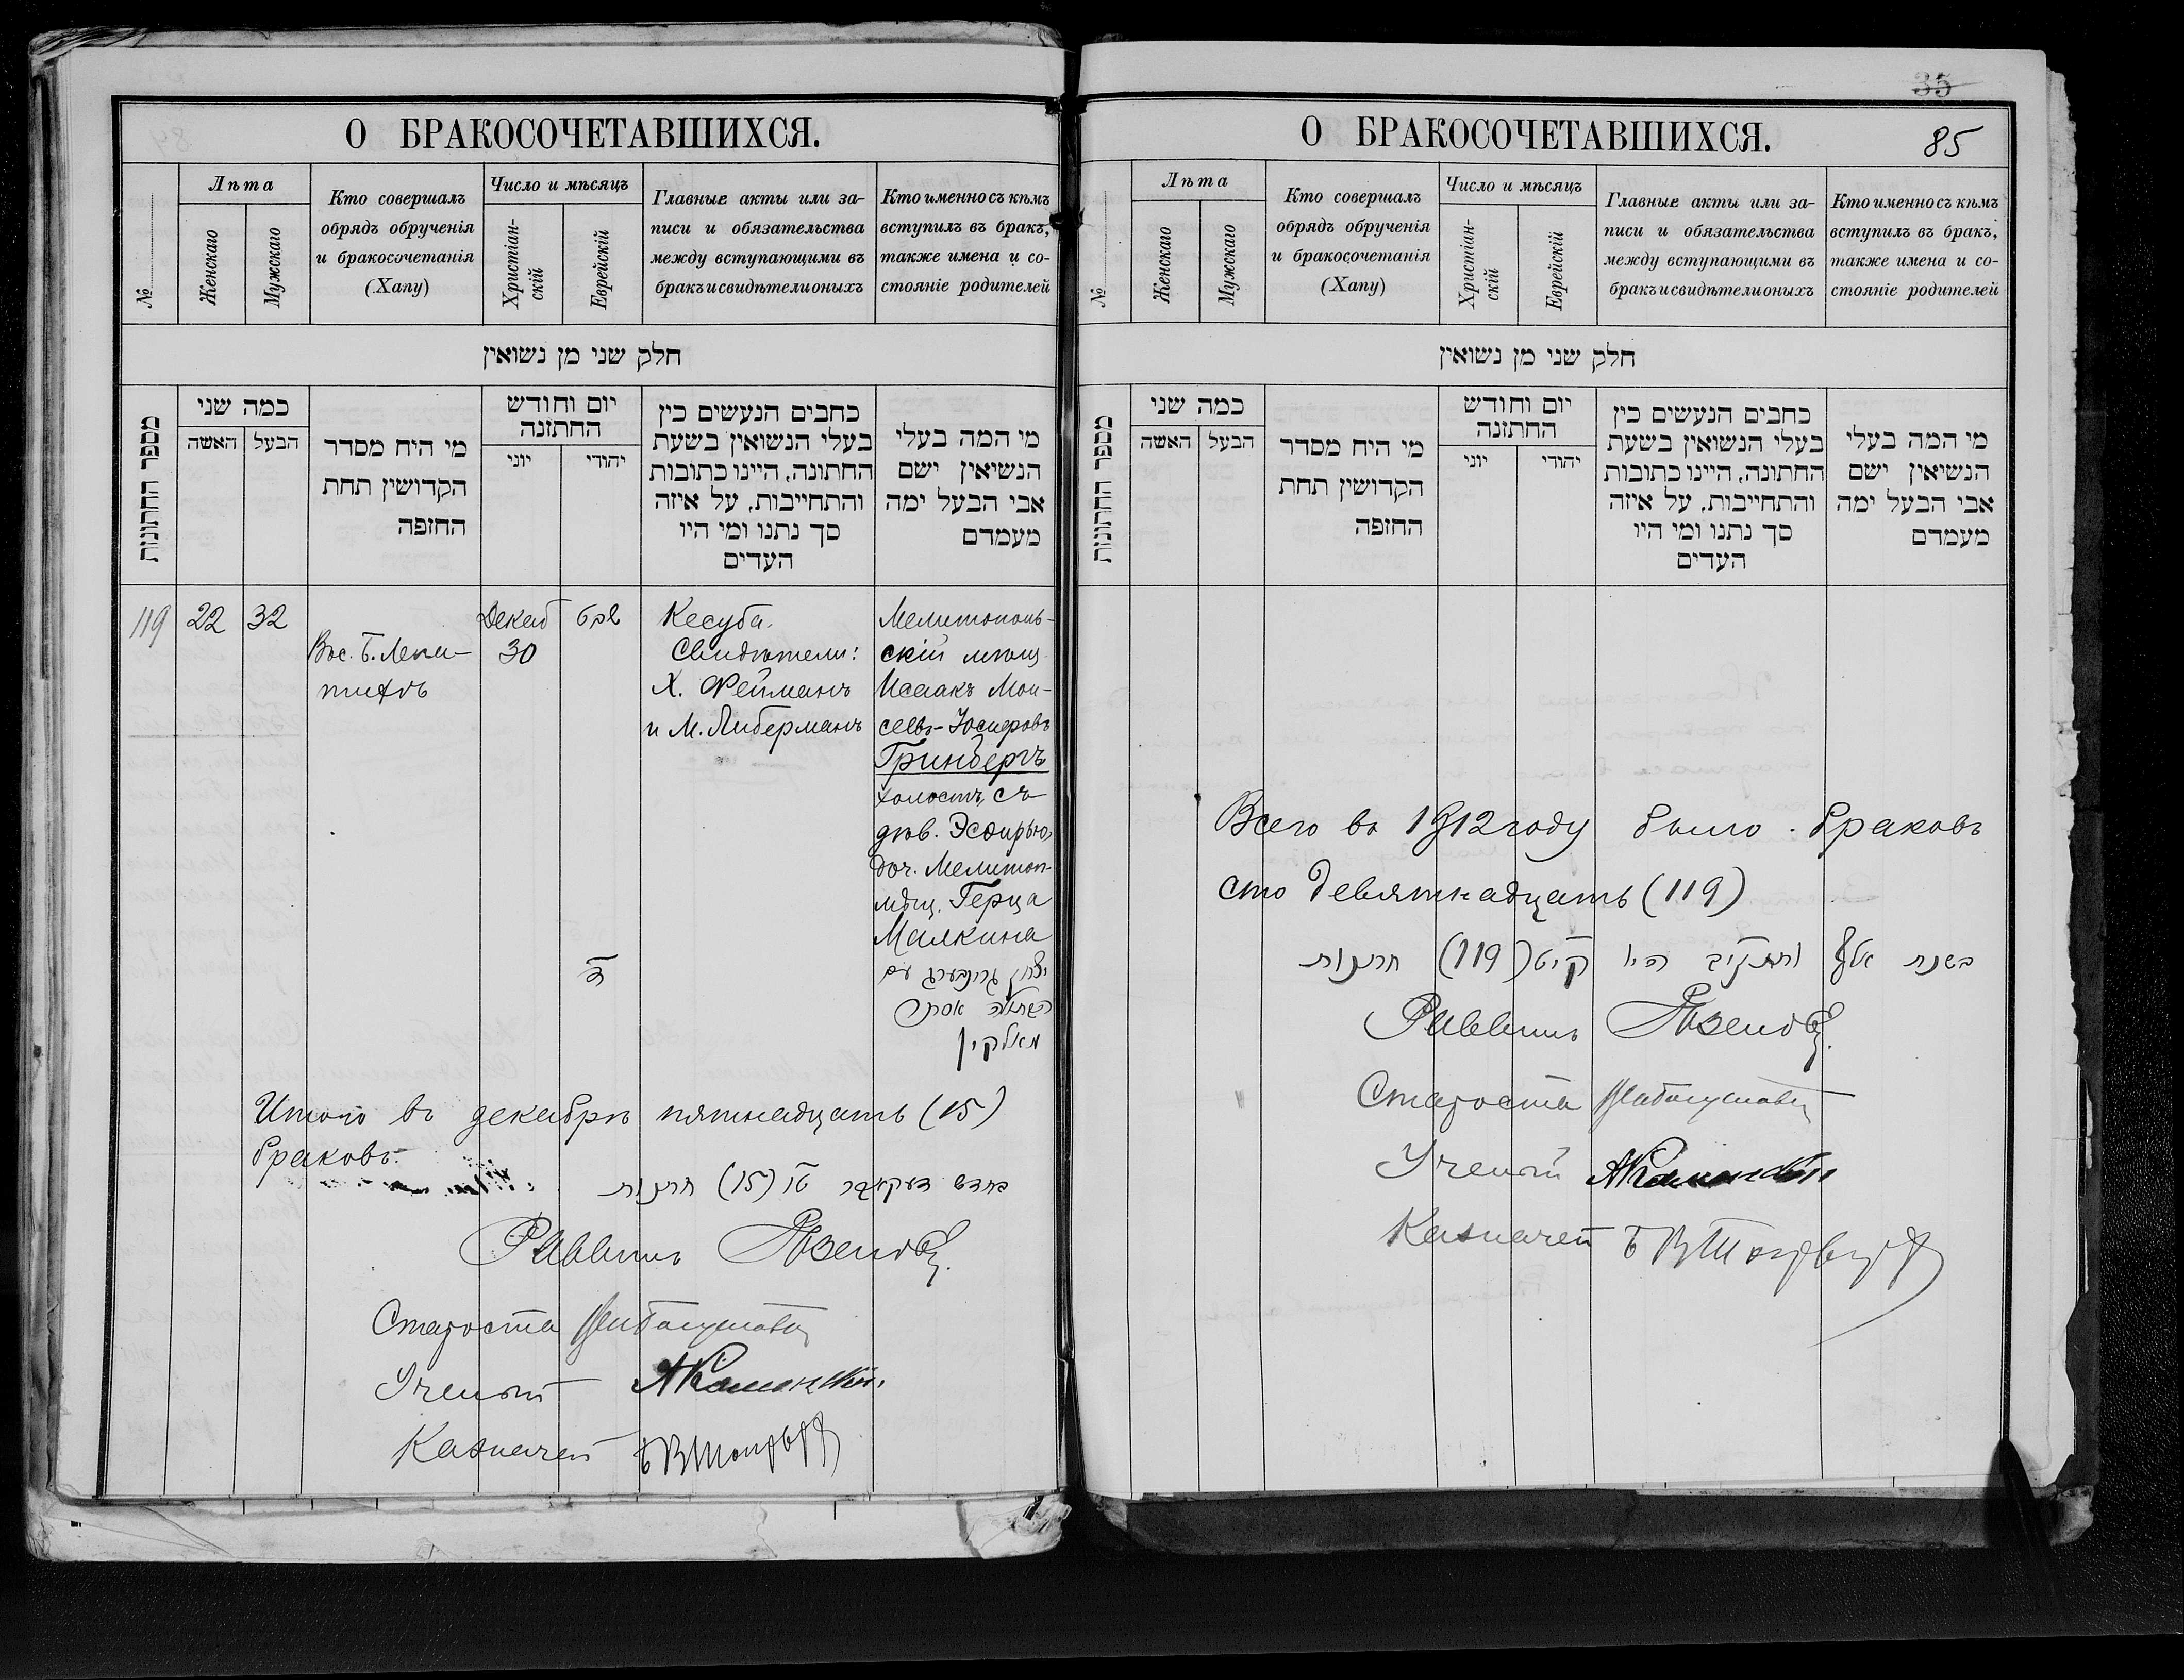 О БРАКОСОЧЕТАВШИХСЯ.
№
Лѣта
Женскаго
Мужскаго
Кто совершалъ
обрядъ обрученія
и бракосочетанія
(Хапу)
Число и мѣсяцъ
Христіан-
скій
Еврейскій
Главные акты или за-
писи и обязательства
между вступающими въ
бракъ и свидѣтели оныхъ
Кто именно съ кѣмъ
вступилъ въ бракъ,
также имена и со-
стояніе родителей
חלק שני מן נשואין
מספר החתונות
כמה שני
האשה
הבעל
מי היח מסדר
הקדושין תחת
החופה
יום וחודש
החתונה
יוני
יהודי
כחבים הנעשים כין
בעלי הנשואין בשעת
החתונה, היינו כתובות
והתחייבות, על איזה
סך נתנו ומי היו
העדים
מי המה בעלי
הנשיאין ישם
אבי הבעל ימה
מעמדם
119
22
32
Декаб
30
Кесуба.
Свидѣтели:
Х. Фейманъ
и М. Либерманъ
Мелитополь-
скій мѣщ.
Исаакъ Мои-
сеевъ-Юсифовъ
Гринбергъ
холостъ, съ
дѣв. Эсѳирью,
доч. Мелитоп-
мѣщ. Герца
Малкина
יצחק גרינבערג עם
הבתולה אסתר
מאלקין
Итого въ декабрѣ пятнадцать (15)
браковъ.
בחדש דעקאבר ט״ו (15) חתונות
Раввинъ
Староста
Ученый
А Каминскій.
Казначей
О БРАКОСОЧЕТАВШИХСЯ.
35
85
№
Лѣта
Женскаго
Мужскаго
Кто совершалъ
обрядъ обрученія
и бракосочетанія
(Хапу)
Число и мѣсяцъ
Христіан-
скій
Еврейскій
Главные акты или за-
писи и обязательства
между вступающими въ
бракъ и свидѣтели оныхъ
Кто именно съ кѣмъ
вступилъ въ бракъ,
также имена и со-
стояніе родителей
חלק שני מן נשואין
מספר החתונות
כמה שני
האשה
הבעל
מי היח מסדר
הקדושין תחת
החופה
יום וחודש
החתונה
יוני
יהודי
כחבים הנעשים כין
בעלי הנשואין בשעת
החתונה, היינו כתובות
והתחייבות, על איזה
סך נתנו ומי היו
העדים
מי המה בעלי
הנשיאין ישם
אבי הבעל ימה
מעמדם
Всего въ 1912 году было браковъ
сто девятнадцать (119)
בשנת אלף ותתקיב היו קיט (119) חתונות
Раввинъ
Староста
Ученый
А Каминскій
Казначей